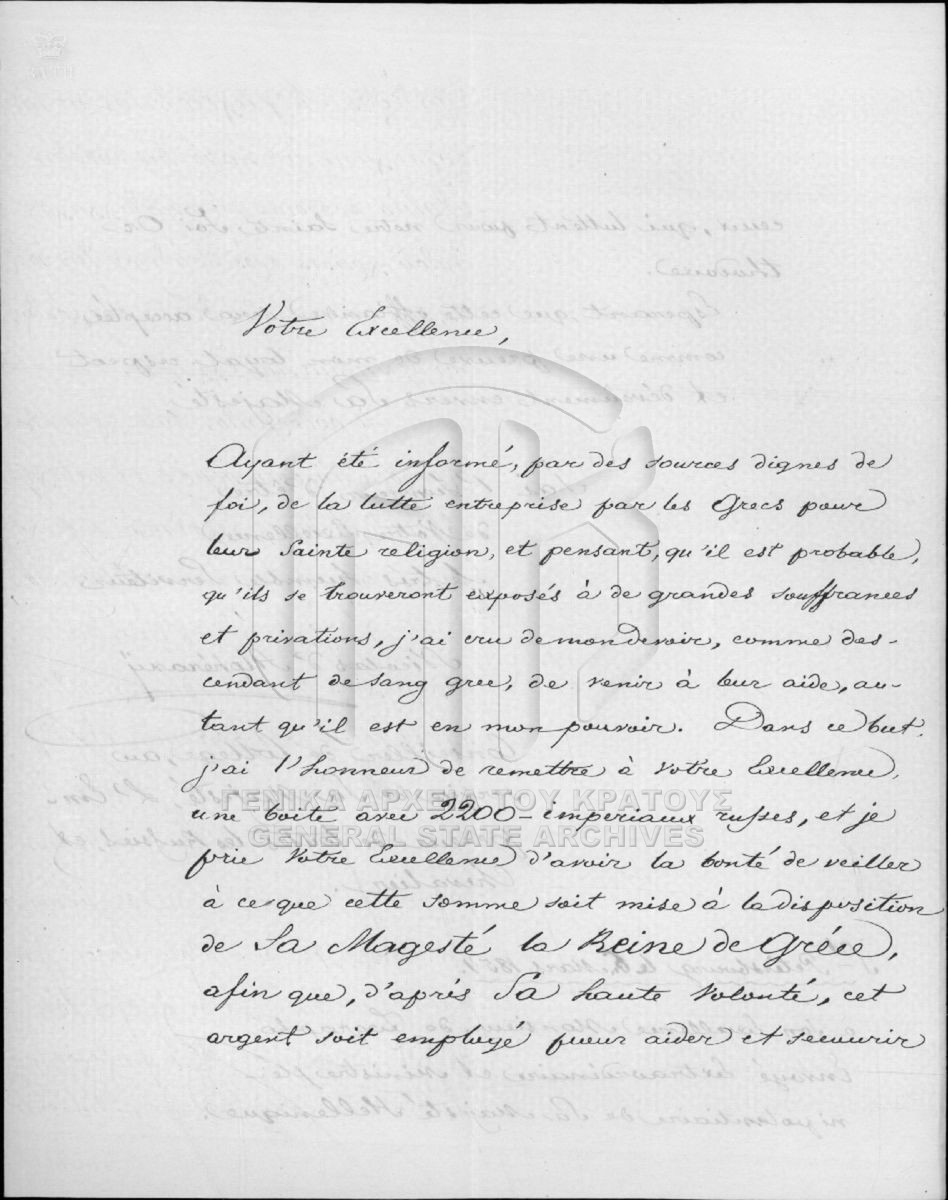 Votre Excellence,
Ayant été informé, par des sources dignes de
foi, de la lutte entreprise par les Grecs pour
leur Sainte religion, et pensant, qu'il est probable,
qu'ils se trouveront exposés à de grandes souffrances
et privations, j'ai cru de mon devoir, comme des-
cendant de sang grec, de venir à leur aide, au-
tant qu'il est en mon pouvoir. Dans ce but,
j'ai l'honneur de remettre à Votre Excellence,
ΓΕΝΙΚΑ ΑΡΧΕΙΑ ΤΟΥ ΚΡΑΤΟΥΣ
une boite avec 2200 - imperiaux russes, et je
GENERAL STATE ARCHIVES
prie Votre Excellence d'avoir la bonté de veiller
à ce que cette somme soit mise à la disposition
de Sa Magesté la Reine de Gréce,
afin que, d'après Sa haute volonté, cet
argent soit employé pour aider et secourir